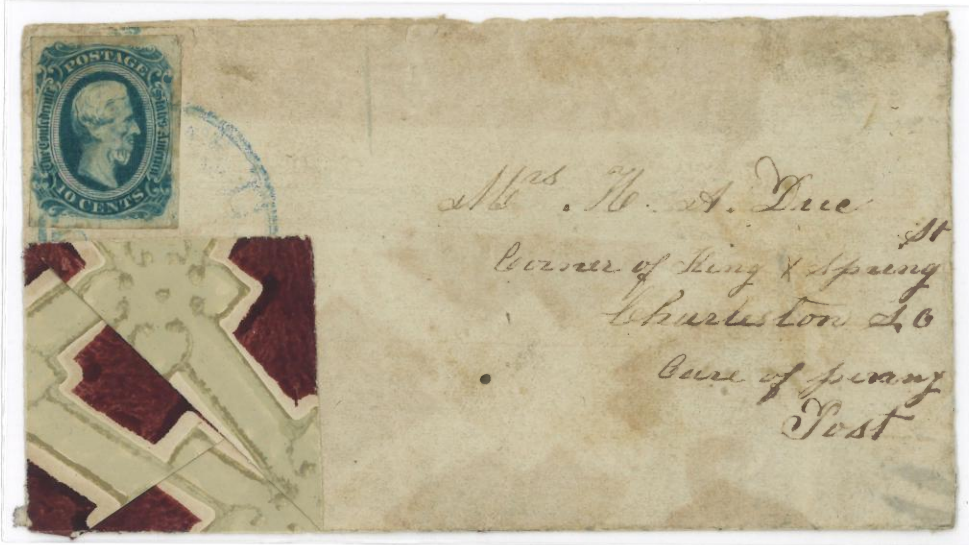 POSTAGE
The Confederate States of America
10 CENTS
Mrs. H. A. Due
Corner of King & Spring St
Charleston So
Care of penny
Post